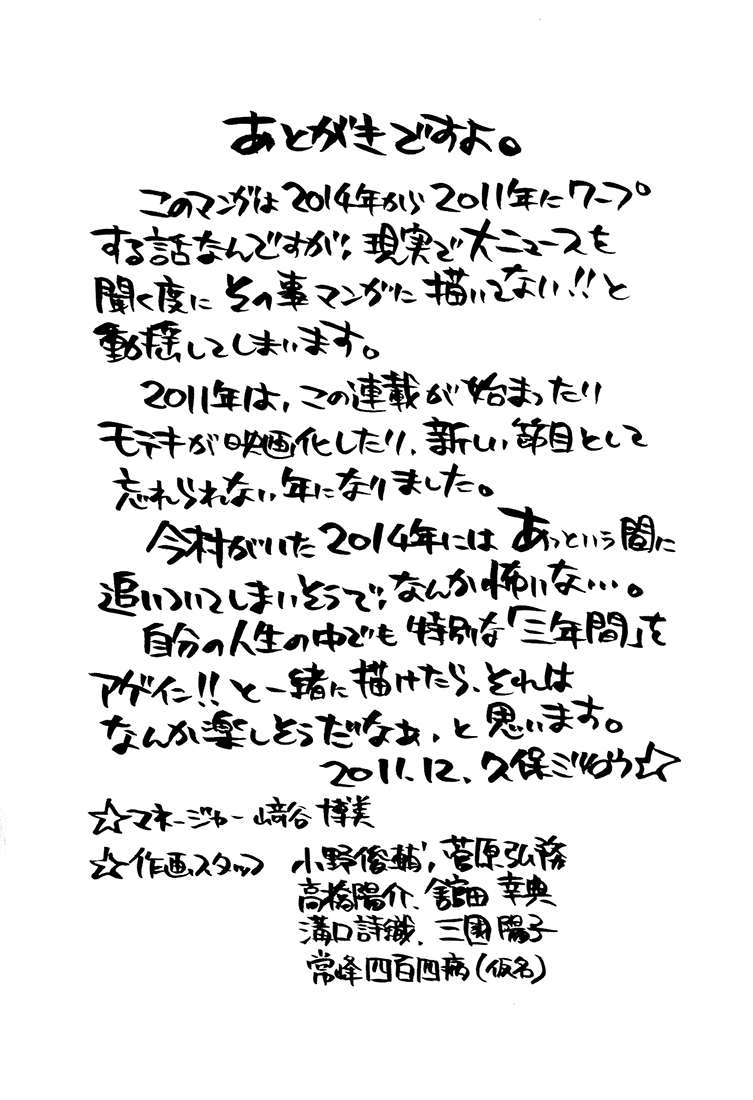 あとがきですよ。
このマンガは2014年から2011年にワープ
する話なんですが、現実で大ニュースを
聞く度にその事マンガに描いてない!!と
動揺してしまいます。
2011年は、この連載が始まったり
モテキが映画化したり、新しい節目として
忘れられない年になりました。
今村がいた2014年にはあっという間に
追いついてしまいそうで、なんか怖いな…。
自分の人生の中でも特別な「三年間」を
アゲイン!!と一緒に描けたら、それは
なんか楽しそうだなぁ、と思います。
2011.12.久保ミツロウ☆
☆マネージャー﨑谷 博美
☆作画スタッフ 小野俊輔、菅原弘務
高橋陽介、舘田幸典
溝口詩織、三國陽子
常峰四百四病(仮名)